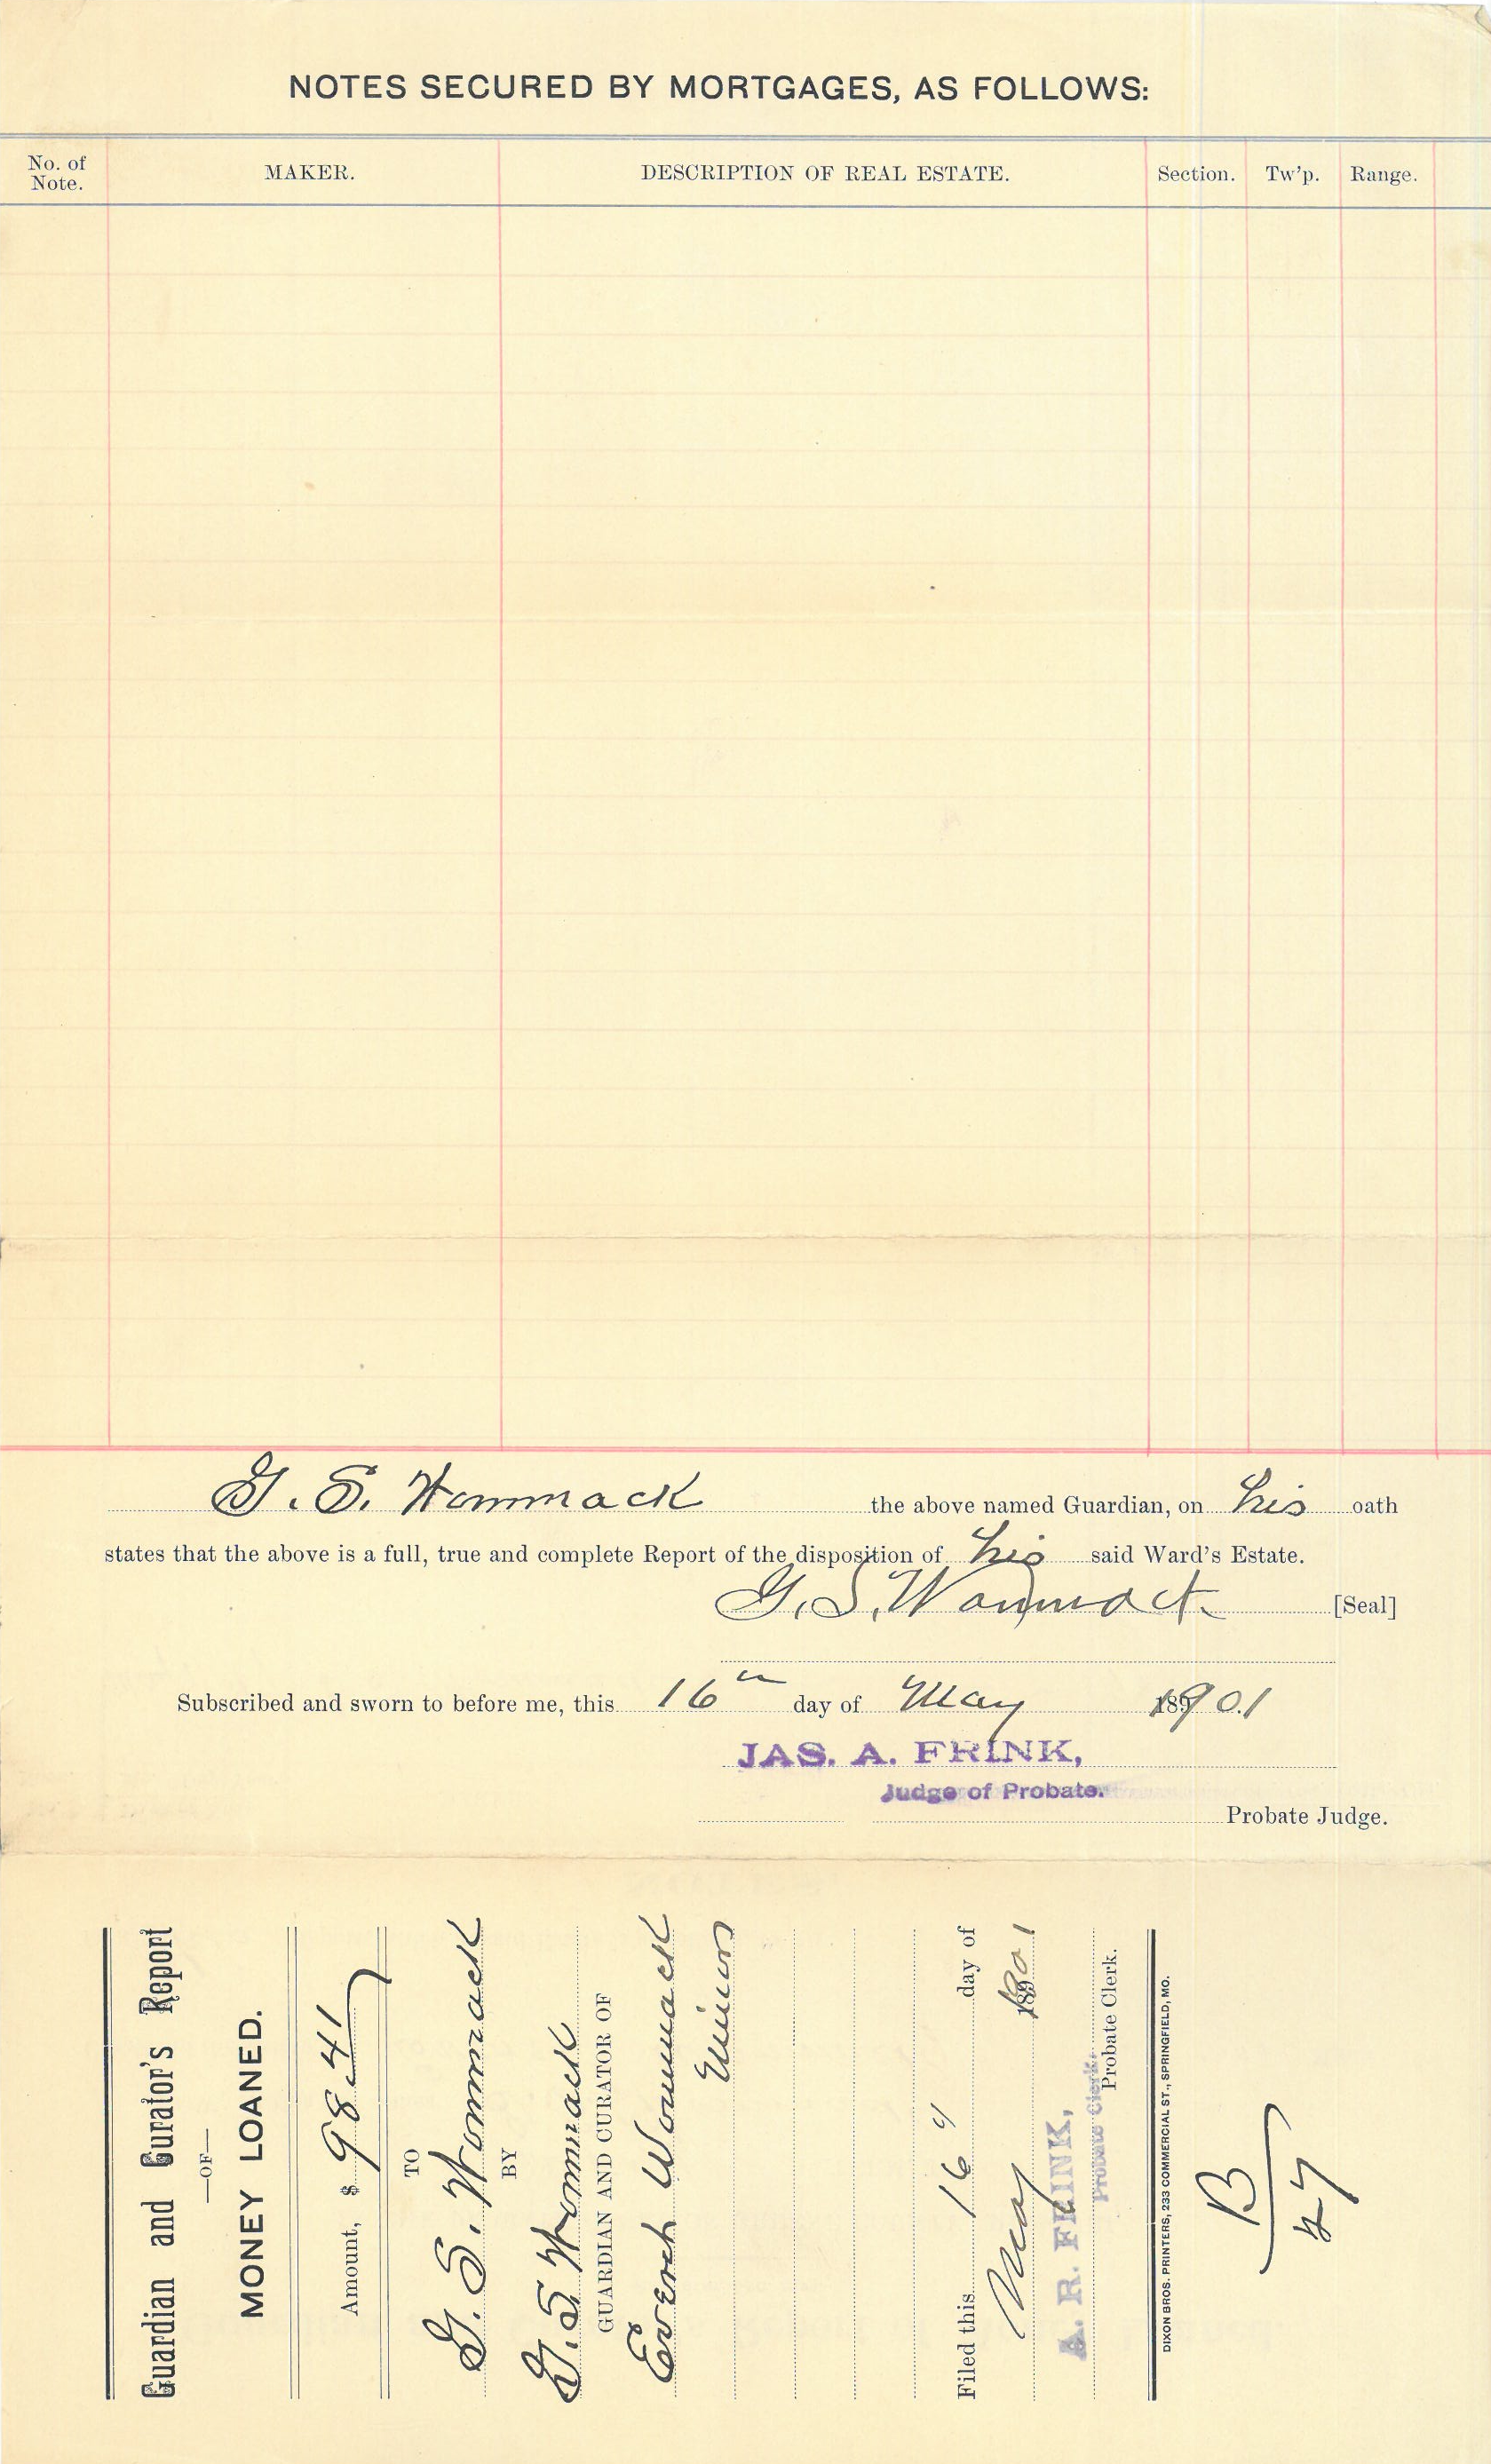 NOTES SECURED BY MORTGAGES, AS FOLLOWS:
No. of Note. MAKER. DESCRIPTION OF REAL ESTATE. Section. Tw'p. Range.
G. S. Wommack the above named Guardian, on his oath
states that the above is a full, true and complete Report of the disposition of his said Ward's Estate.
G. S. Wommack [Seal]
Subscribed and sworn to before me, this 16th day of May 1901
JAS. A. FRINK,
Judge of Probate.
Probate Judge.
Guardian and Curator's Report
—OF—
MONEY LOANED.
Amount, $ 98.41
TO
G. S. Wommack
BY
G. S. Wommack
GUARDIAN AND CURATOR OF
Wommack
Minor
Filed this 16 day of
May 1901
A. R. FRINK,
Probate Clerk.
Probate Clerk.
DIXON BROS. PRINTERS, 233 COMMERCIAL ST., SPRINGFIELD, MO.
B
47